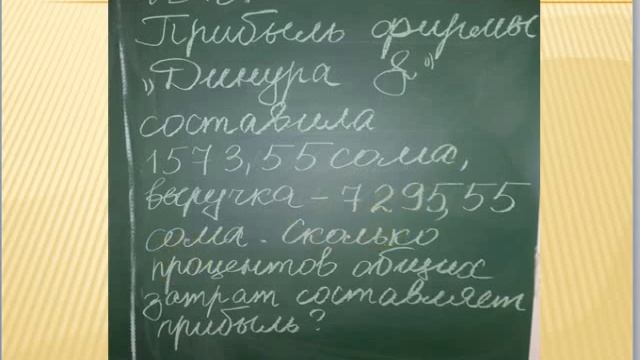 Прибыль фирмы
„Динура &"
составила
1573,55 сома,
выручка – 7295,55
сома. Сколько
процентов общих
затрат составляет
прибыль?